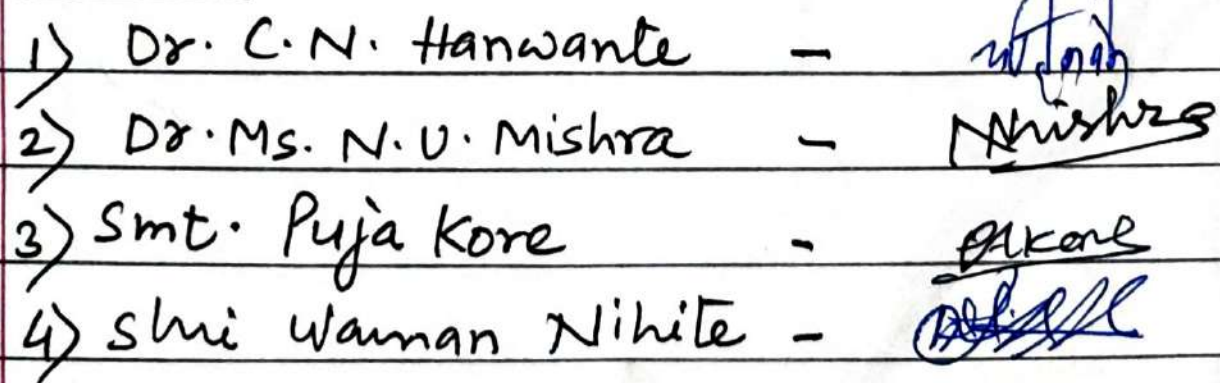 1) Dr. C. N. Hanwante -
2) Dr. Ms. N. U. Mishra - NMishra
3) Smt. Puja Kore - PAKore
4) Shri Waman Nihite -